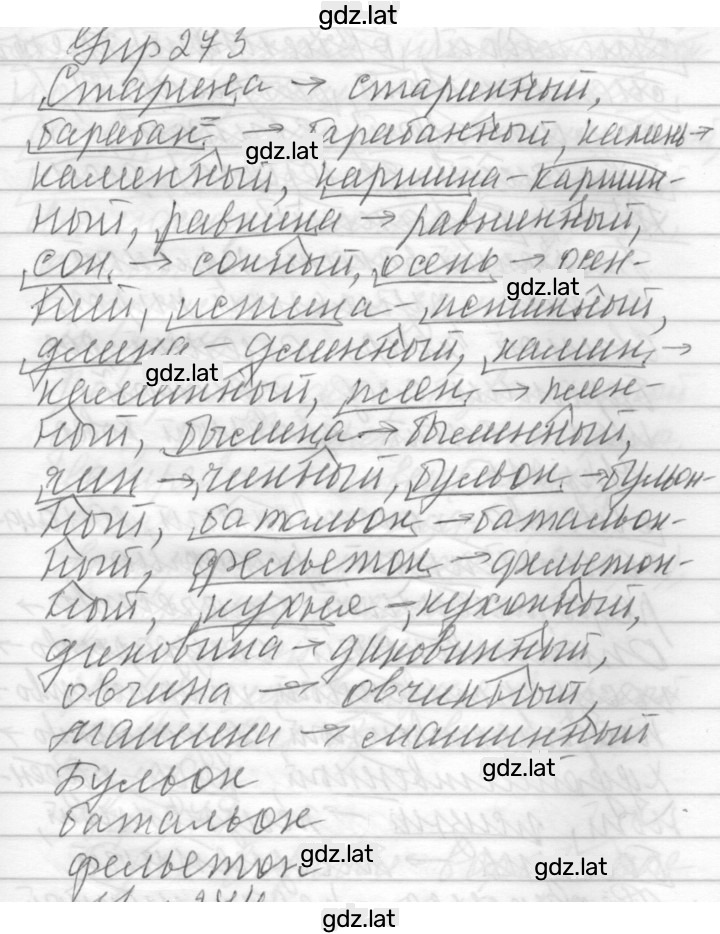 gdz.lat
Упр 273
Старина → старинный,
барабан → барабанный, камень →
gdz.lat
каменный, картина - картин-
ный, равнина → равнинный,
сон → сонный, осень → осен-
gdz.lat
ний, истина - истинный,
длина - длинный, камин →
gdz.lat
каминный, плен → плен-
ный, былина → былинный,
чин → чинный, бульон → бульон-
ный, батальон → батальон-
ный, фельетон → фельетон-
ный, кухня - кухонный,
диковина → диковинный,
овчина → овчинный,
машина → машинный
gdz.lat
Бульон
батальон
фельетон
gdz.lat
gdz.lat
gdz.lat